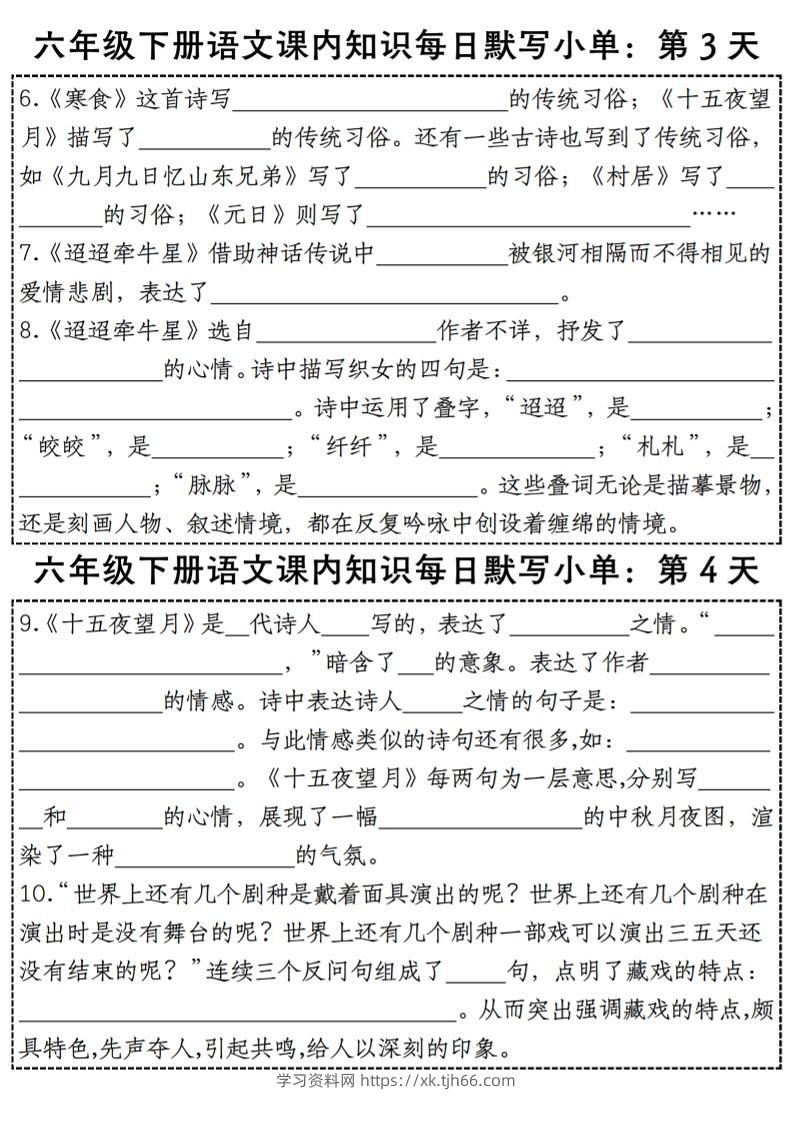 六年级下册语文课内知识每日默写小单：第 3 天
6.《寒食》这首诗写_______________________的传统习俗；《十五夜望
月》描写了___________的传统习俗。还有一些古诗也写到了传统习俗，
如《九月九日忆山东兄弟》写了___________的习俗；《村居》写了____
_______的习俗；《元日》则写了___________________________……
7.《迢迢牵牛星》借助神话传说中___________被银河相隔而不得相见的
爱情悲剧，表达了_____________________________。
8.《迢迢牵牛星》选自_______________作者不详，抒发了____________
____________的心情。诗中描写织女的四句是：______________________
_______________________。诗中运用了叠字，“迢迢”，是___________；
“皎皎”，是___________；“纤纤”，是_____________；“札札”，是__
___________；“脉脉”，是_______________。这些叠词无论是描摹景物，
还是刻画人物、叙述情境，都在反复吟咏中创设着缠绵的情境。
六年级下册语文课内知识每日默写小单：第 4 天
9.《十五夜望月》是__代诗人____写的，表达了__________之情。“_____
______________________，”暗含了___的意象。表达了作者__________
____________的情感。诗中表达诗人_____之情的句子是：____________
__________________。与此情感类似的诗句还有很多,如：____________
__________________。《十五夜望月》每两句为一层意思,分别写______
__和________的心情，展现了一幅_________________的中秋月夜图，渲
染了一种_______________的气氛。
10.“世界上还有几个剧种是戴着面具演出的呢？世界上还有几个剧种在
演出时是没有舞台的呢？世界上还有几个剧种一部戏可以演出三五天还
没有结束的呢？”连续三个反问句组成了_____句，点明了藏戏的特点：
____________________________________。从而突出强调藏戏的特点,颇
具特色,先声夺人,引起共鸣,给人以深刻的印象。
学习资料网 https://xk.tjh66.com